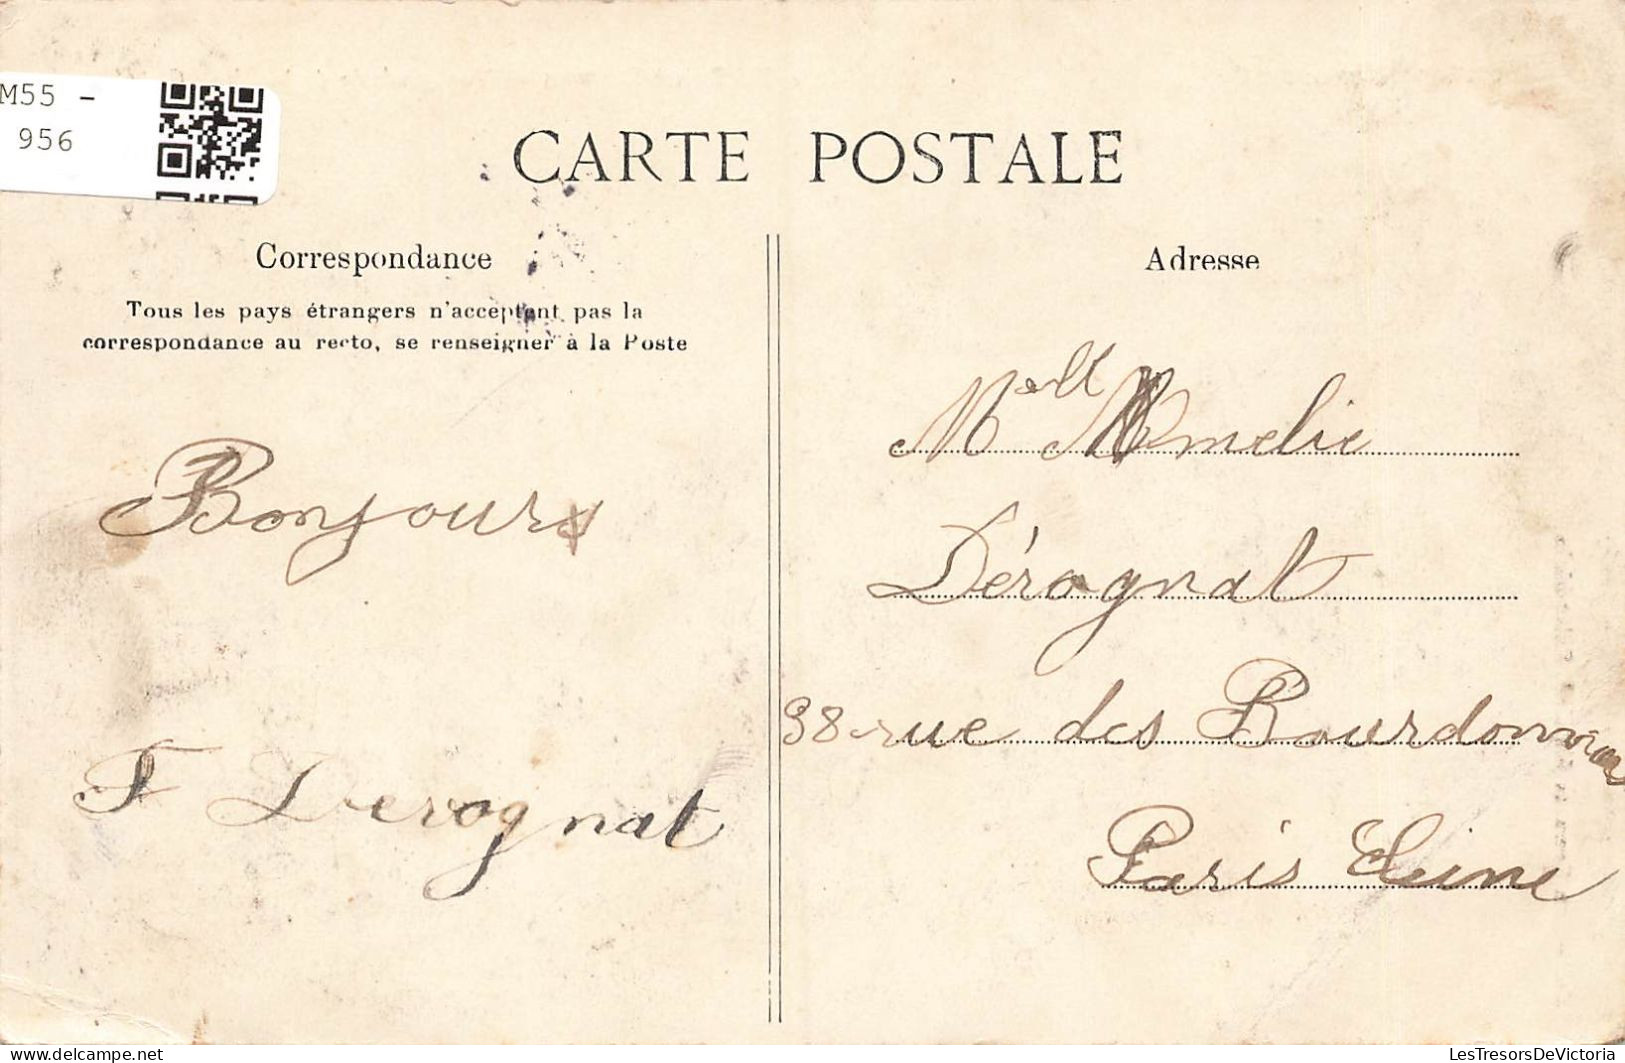 M55 -
956
CARTE POSTALE
Correspondance
Tous les pays étrangers n'acceptent pas la
correspondance au recto, se renseigner à la Poste
Bonjours
F Derognat
Adresse
Melle Amelie
Dérognat
98 rue des Bourdonnais
Paris Seine
delcampe.net
LesTresorsDeVictoria